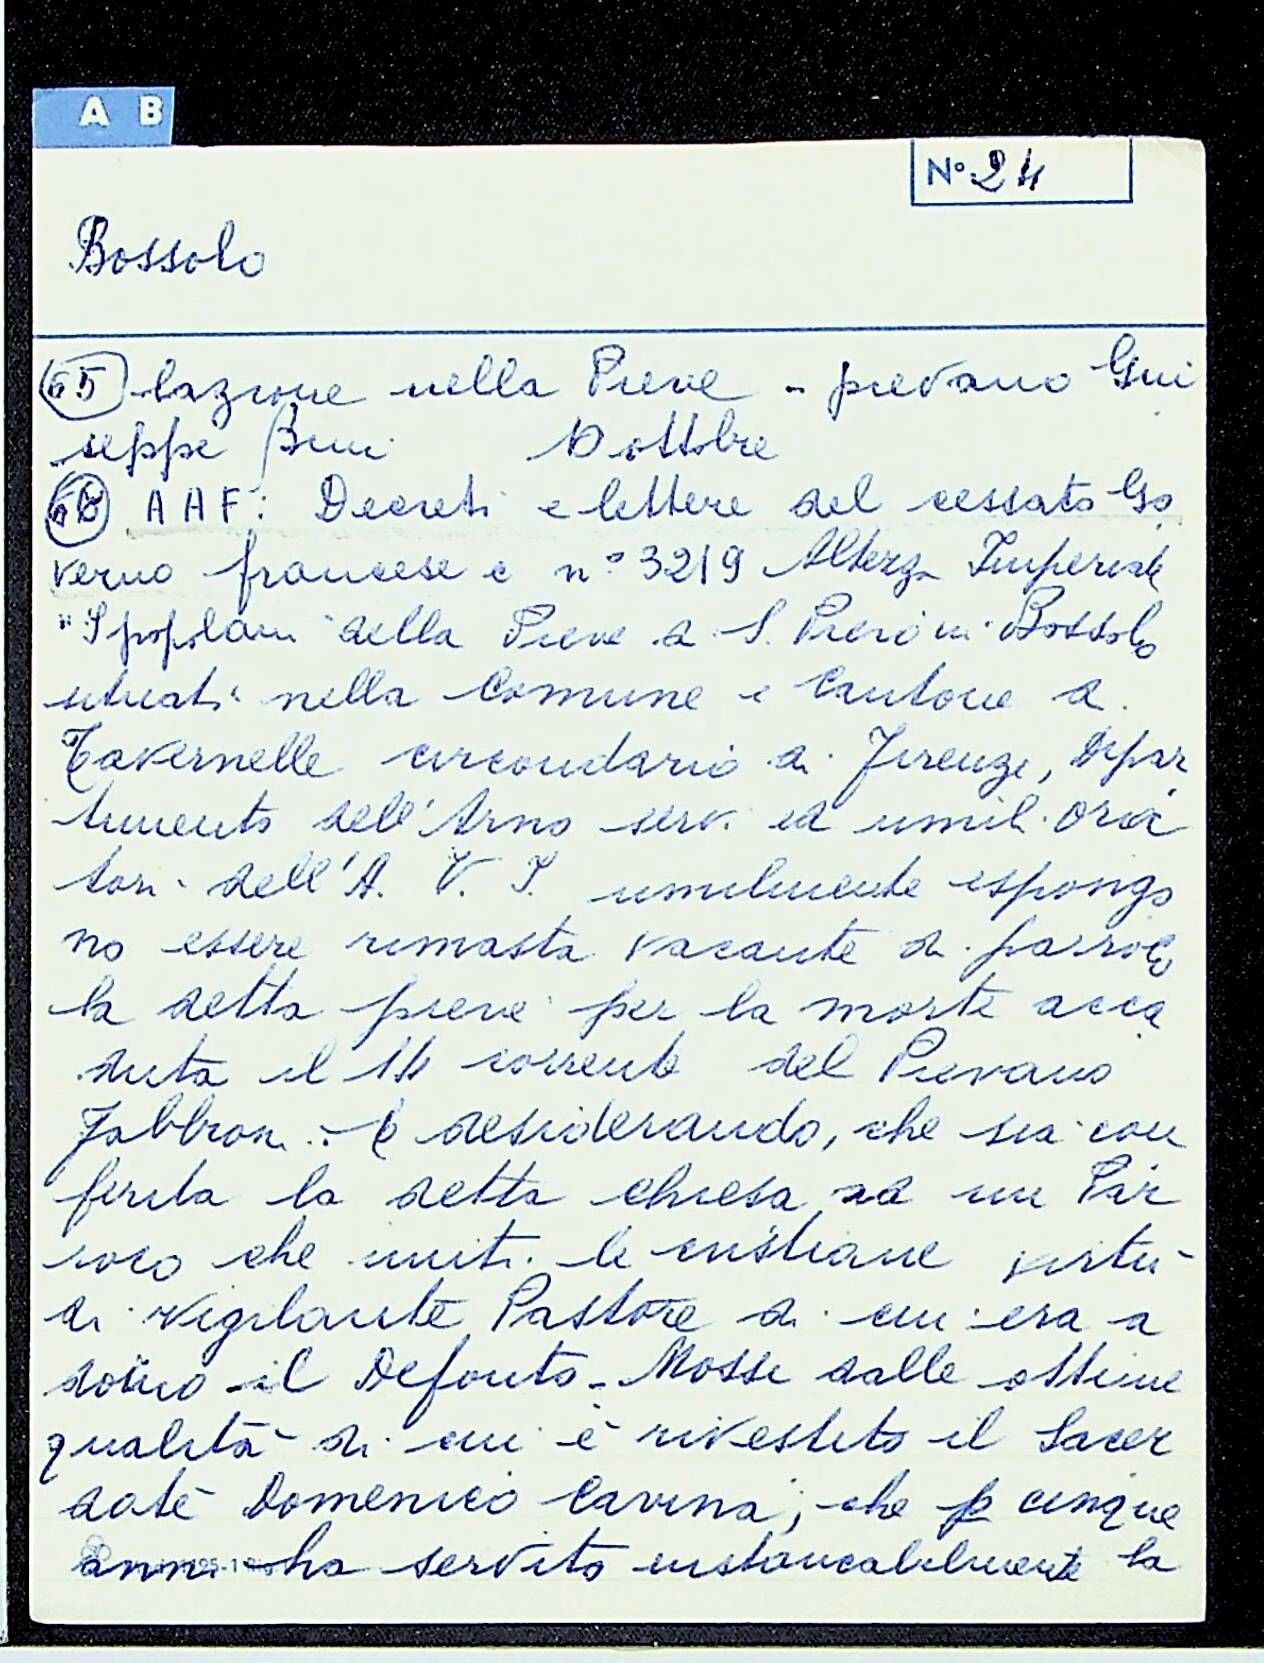 A B
N° 24
Bossolo
65 lazione nella Pieve - pievano Giu
seppe Buti 10 ottobre
66 AAF: Decreti e lettere del cessato Go
verno francese e n° 3219 Altezza Imperiale
"I popolani della Pieve di S. Piero in Bossolo
situati nella Comune e Cantone di
Tavernelle circondario di Firenze, Dipar
timento dell'Arno serv. ed umil. ora
tori dell'A. V. I. umilmente espongo
no essere rimasta vacante di parroco
la detta pieve per la morte acca
duta il 14 corrente del Pievano
Fabbroni. E desiderando, che sia con
ferita la detta chiesa ad un Par
roco che uniti le cristiane virtù
di vigilante Pastore di cui era a
dorno il Defonto - Mossi dalle ottime
qualità di cui è rivestito il Sacer
dote Domenico Cavina, che p cinque
anni ha servito instancabilmente la